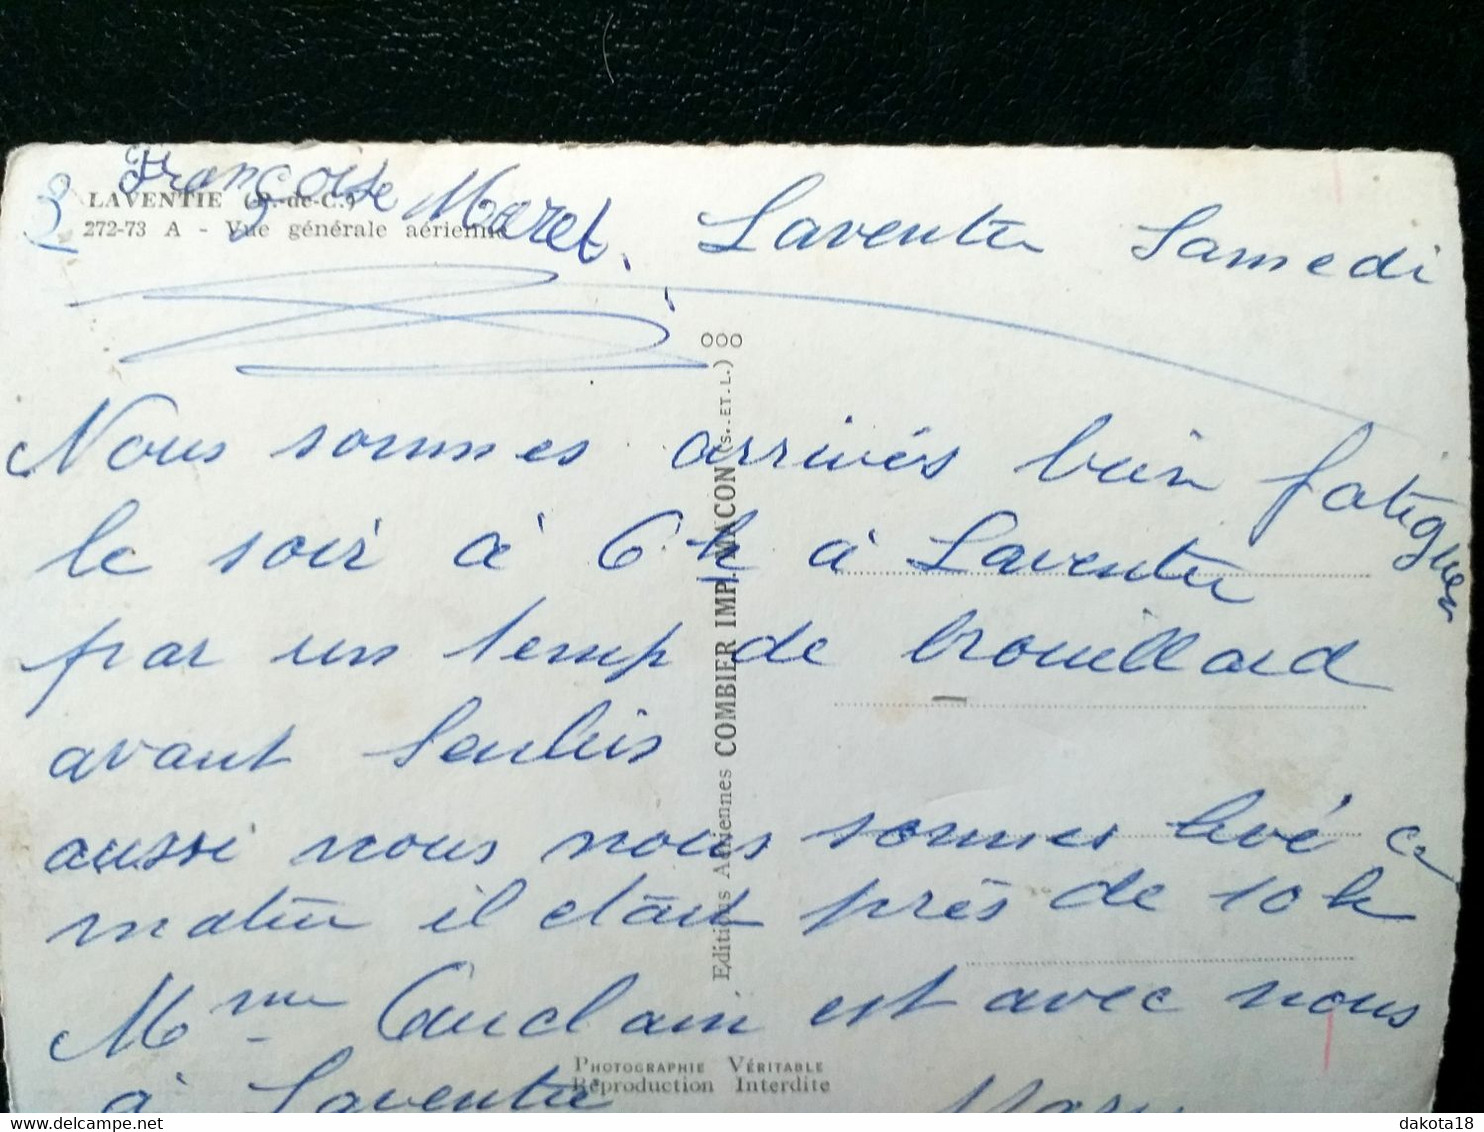 Françoise Maret.
LAVENTIE (P.-de-C.)
272-73 A - Vue générale aérienne
Laventie Samedi
Nous sommes arrivés bien fatiguer
le soir à 6 h à Laventie
par un temp de brouillard
avant Senlis
aussi nous nous sommes levé ce
matin il était près de 10 h
Mme Cauclain est avec nous
à Laventie
Editions Aériennes COMBIER IMP. MACON (S.-ET-L.) ooo
PHOTOGRAPHIE VÉRITABLE
Reproduction Interdite
dakota18